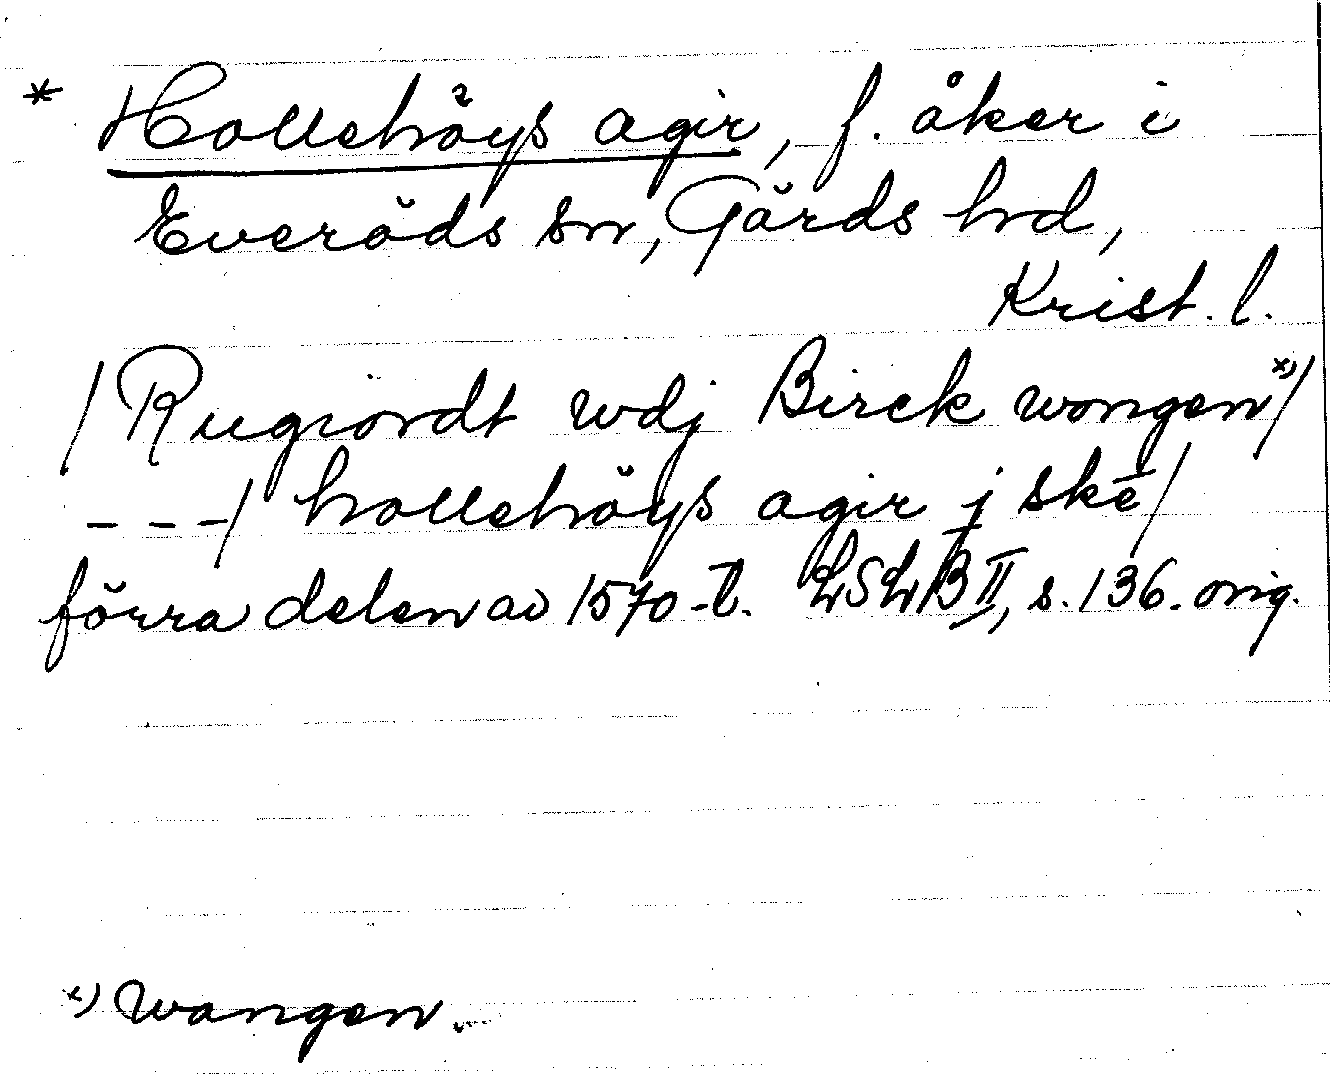 * Hollehöys agir, f. åker i
Everöds sn, Gärds hd,
Krist. l.
/Rugiordt wdj Birck wongen x)/
- - -/ hollehöys agir j skē/
förra delen av 1570-t. LSLB II, s. 136. orig.
x) Wangen.